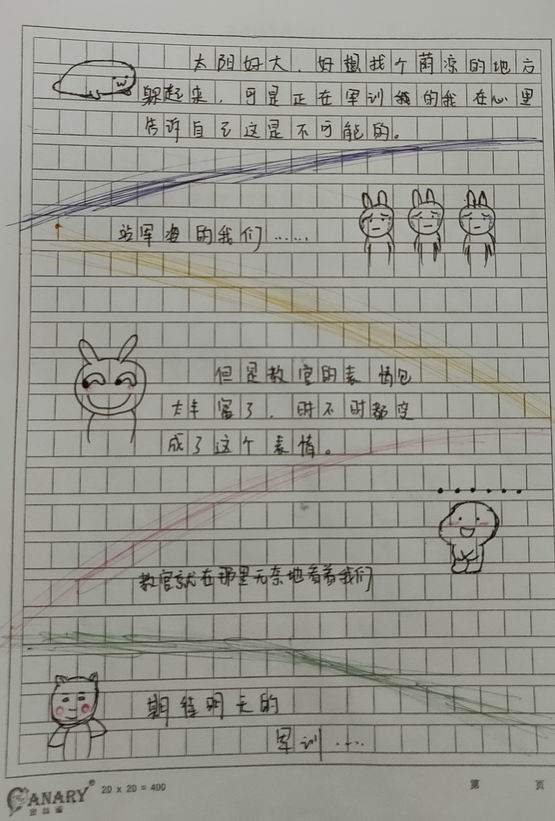 太阳好大，好想找个荫凉的地方
躲起来，可是正在军训的我在心里
告诉自己这是不可能的。
站军姿的我们……
但是教官的表情包
太丰富了，时不时都变
成了这个表情。
......
教官就在那里无奈地看着我们
期待明天的
军训....
CANARY®
20 x 20 = 400
第 页